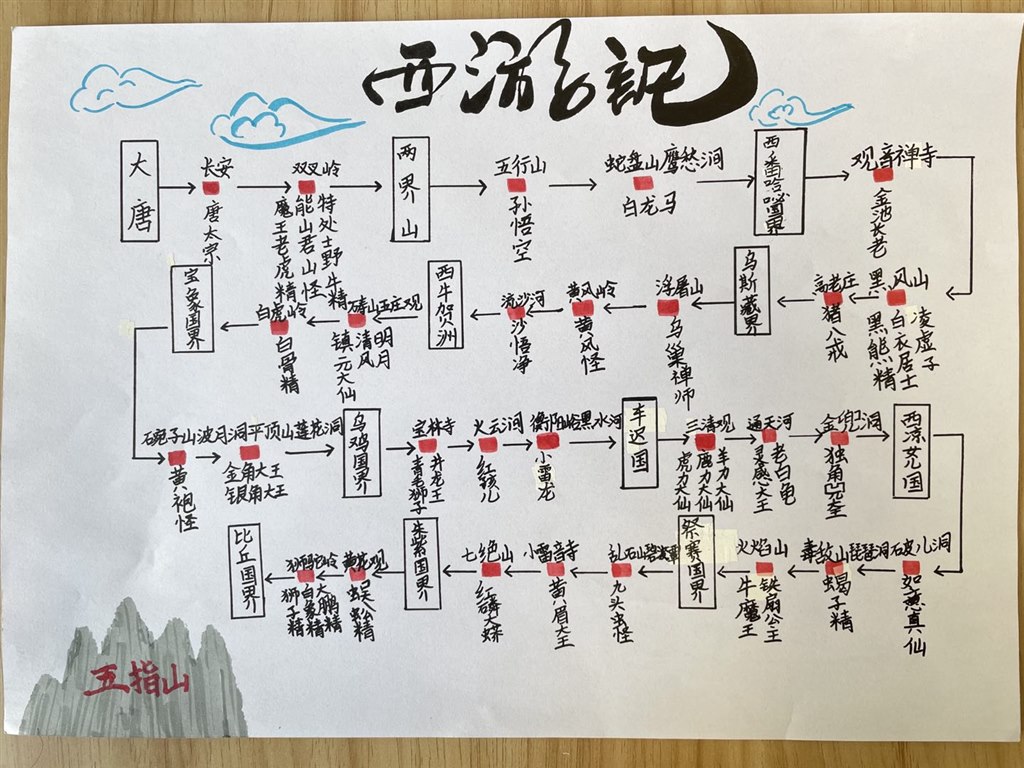 西游記
大唐
长安
唐太宗
双叉岭
特处士野牛精
能山君山怪
魔王老虎精
两界山
五行山
孙悟空
蛇盘山鹰愁涧
白龙马
西番哈咇国界
观音禅寺
金池长老
黑风山
凌虚子
白衣居士
黑熊精
高老庄
猪八戒
乌斯藏界
浮屠山
乌巢禅师
黄风岭
黄风怪
流沙河
沙悟净
西牛贺洲
寿山五庄观
明月
清风
镇元大仙
白虎岭
白骨精
宝象国界
碗子山波月洞
黄袍怪
平顶山莲花洞
金角大王
银角大王
乌鸡国界
宝林寺
井龙王
青毛狮子
火云洞
红孩儿
衡阳峪黑水河
小鼍龙
车迟国
三清观
羊力大仙
鹿力大仙
虎力大仙
通天河
老白龟
灵感大王
金兜洞
独角兕大王
西凉女国
破儿洞
如意真仙
毒敌山琵琶洞
蝎子精
火焰山
铁扇公主
牛魔王
祭赛国界
乱石山碧波潭
九头虫怪
小雷音寺
黄眉大王
七绝山
红磷大蟒
朱紫国界
黄花观
蜈蚣精
狮驼岭
大鹏精
白象精
狮子精
比丘国界
五指山